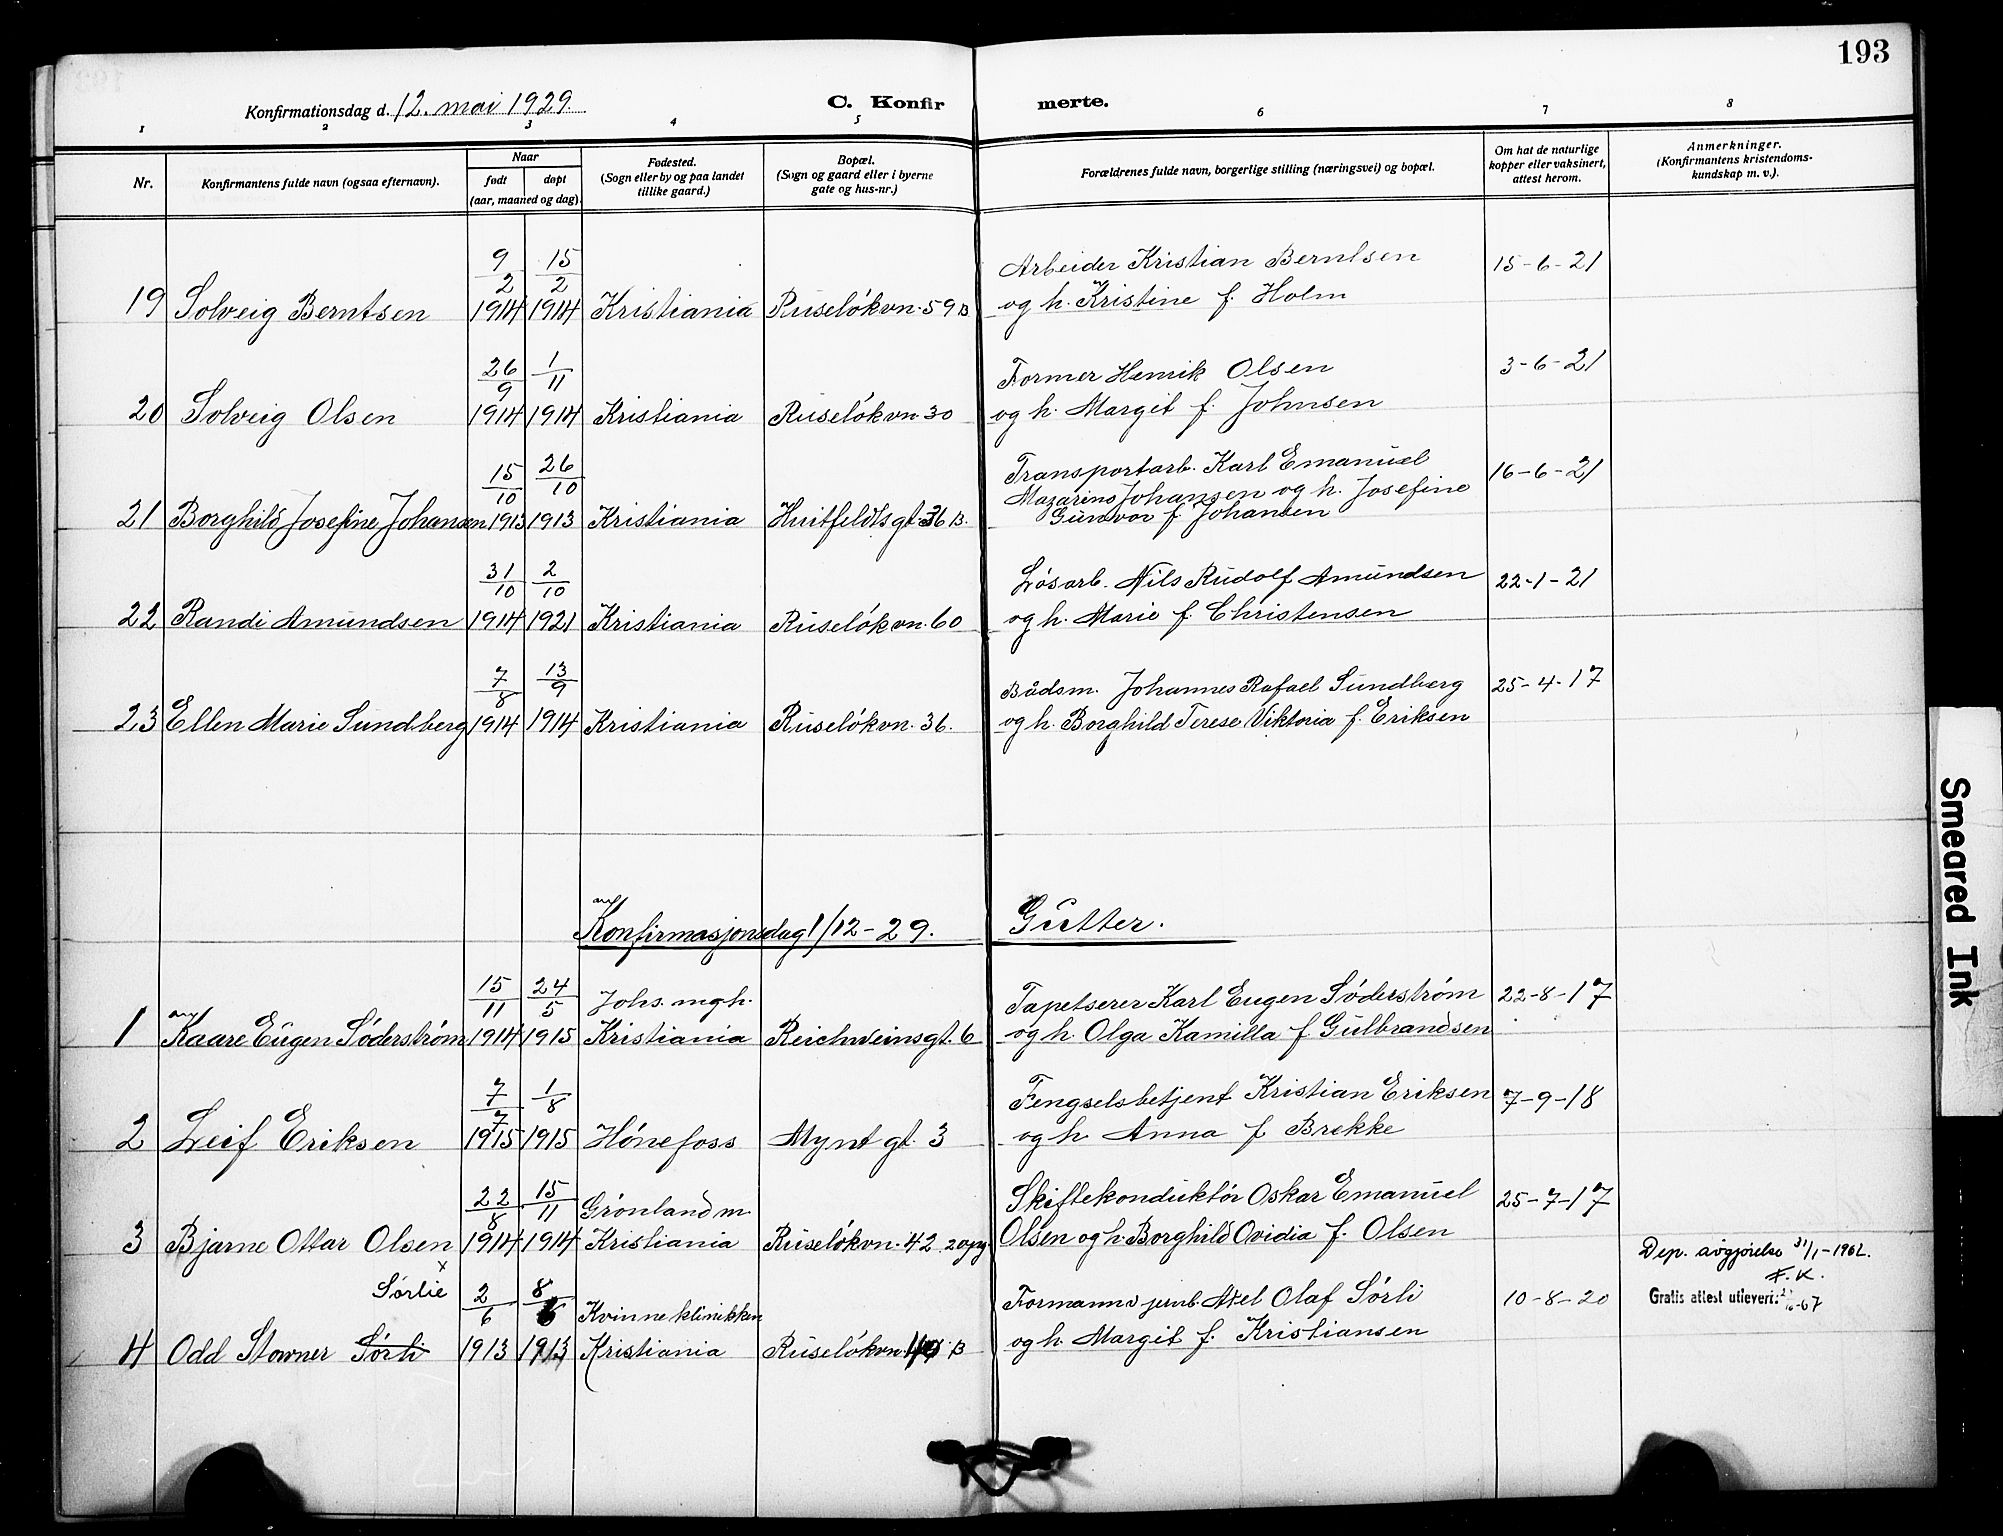 193
Konfirmationsdag d. 12. mai 1929.
C. Konfir merte.
1 2 3 4 5 6 7 8
Nr.
Konfirmantens fulde navn (ogsaa efternavn).
Naar
født
døpt
(aar, maaned og dag).
Fødested.
(Sogn eller by og paa landet
tillike gaard.)
Bopæl.
(Sogn og gaard eller i byerne
gate og hus-nr.)
Forældrenes fulde navn, borgerlige stilling (næringsvei) og bopæl.
Om hat de naturlige
kopper eller vaksinert,
attest herom.
Anmerkninger.
(Konfirmantens kristendoms-
kundskap m. v.).
9/2 15/2 Arbeider Kristian Berntsen 15-6-21
19 Solveig Berntsen 1914 1914 Kristiania Ruseløkvn. 59 B og h. Kristine f. Holm
26/9 1/11 Former Henrik Olsen 3-6-21
20 Solveig Olsen 1914 1914 Kristiania Ruseløkvn. 30 og h. Margit f. Johnsen
15/10 26/10 Transportarb. Karl Emanuel 16-6-21
Mazarins Johansen og h. Josefine
21 Borghild Josefine Johansen 1913 1913 Kristiania Huitfeldts gt. 36 B. Gunvor f. Johansen
31/10 2/10 Løsarb. Nils Rudolf Amundsen 22-1-21
22 Randi Amundsen 1914 1921 Kristiania Ruseløkvn. 60 og h. Marie f. Christensen
7/8 13/9 Bådsm. Johannes Rafael Sundberg 25-4-17
23 Ellen Marie Sundberg 1914 1914 Kristiania Ruseløkvn. 36. og h. Borghild Terese Viktoria f. Eriksen
Konfirmasjonsdag 1/12-29. Gutter.
15/11 24/5 Johs. mgh. Tapetserer Karl Eugen Søderstrøm 22-8-17
1 Kaare Eugen Søderstrøm 1914 1915 Kristiania Reichweinsgt. 6 og h. Olga Kamilla f. Gulbrandsen
7/7 1/8 Fengselsbetjent Kristian Eriksen 7-9-18
2 Leif Eriksen 1915 1915 Hønefoss Mynt gt. 3 og h. Anna f. Brekke
22/8 15/11 Grønland m. Skiftekonduktør Oskar Emanuel 25-7-17
3 Bjarne Ottar Olsen 1914 1914 Kristiania Ruseløkvn. 42 2 opg. Olsen og h. Borghild Ovidia f. Olsen
Dep. avgjørelse 31/1-1962.
F.K.
Sørlie x 2/6 8/6 Kvinneklinikken Formann v jernb. Axel Olaf Sørli 10-8-20 Gratis attest utlevert
4 Odd Stowner Sørli 1913 1913 Kristiania Ruseløkvn. B og h. Margit f. Kristiansen
Smeared Ink